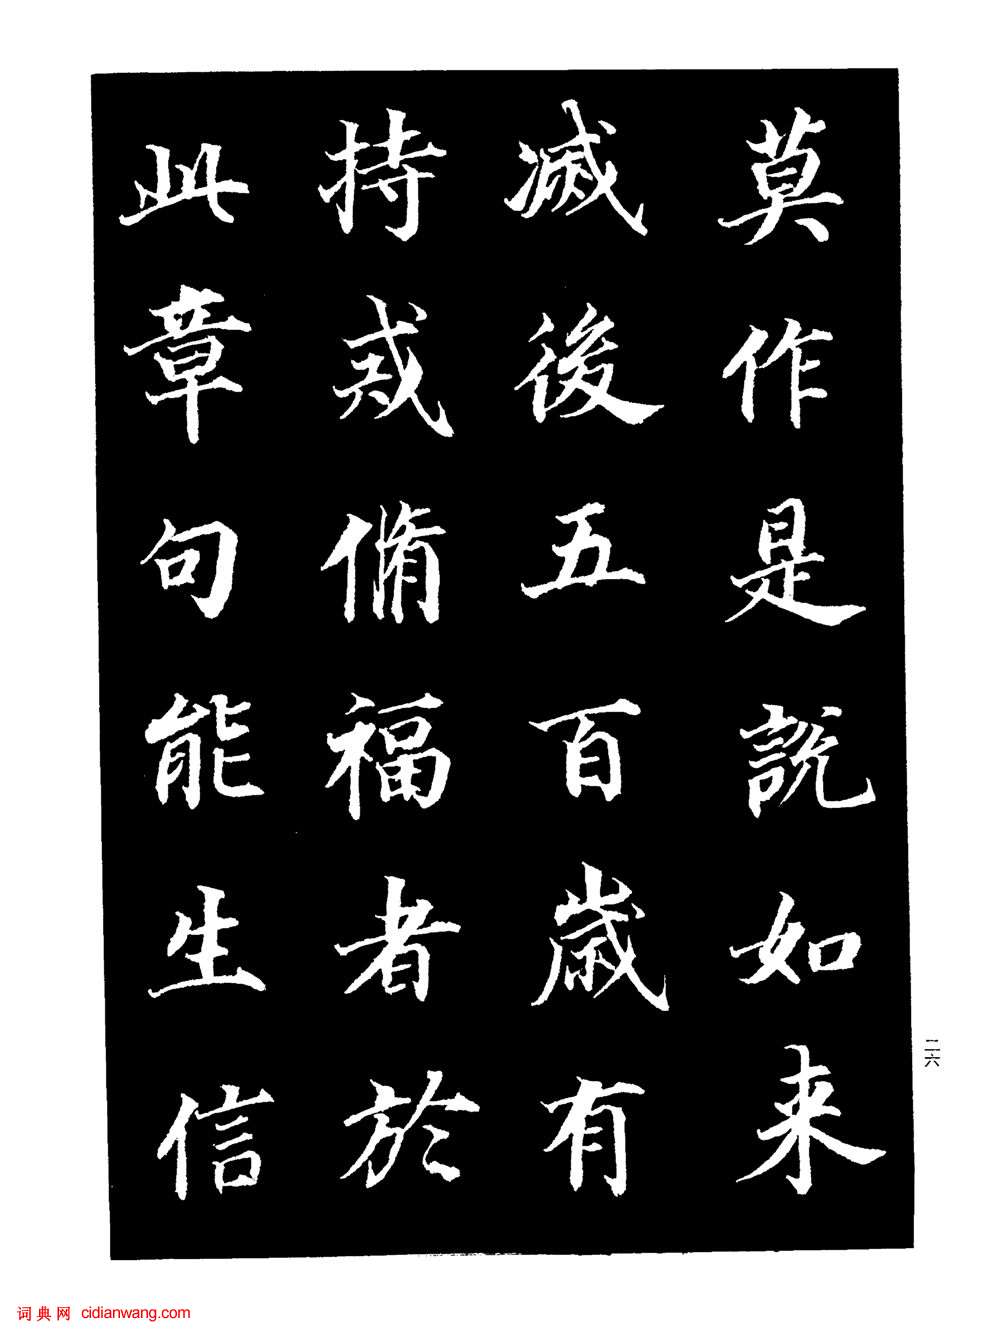 莫作是說如来
滅後五百歲有
持戒脩福者於
此章句能生信
二六
词典网 cidianwang.com